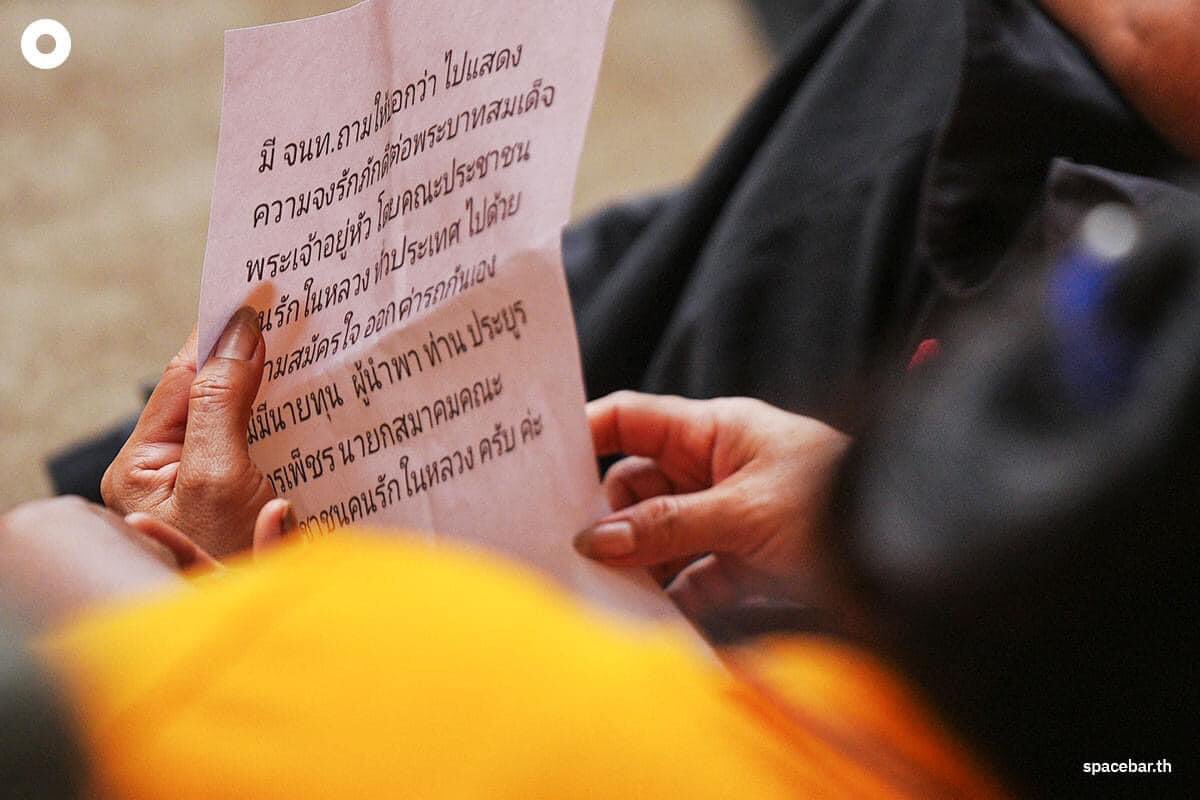 มี จนท.ถามให้บอกว่า ไปแสดง
ความจงรักภักดีต่อพระบาทสมเด็จ
พระเจ้าอยู่หัว โดยคณะประชาชน
คนรักในหลวง ทั่วประเทศ ไปด้วย
ความสมัครใจ ออก ค่ารถกันเอง
ไม่มีนายทุน ผู้นำพา ท่าน ประยูร
เพ็ชร นายกสมาคมคณะ
ประชาชนคนรักในหลวง ครับ ค่ะ
spacebar.th